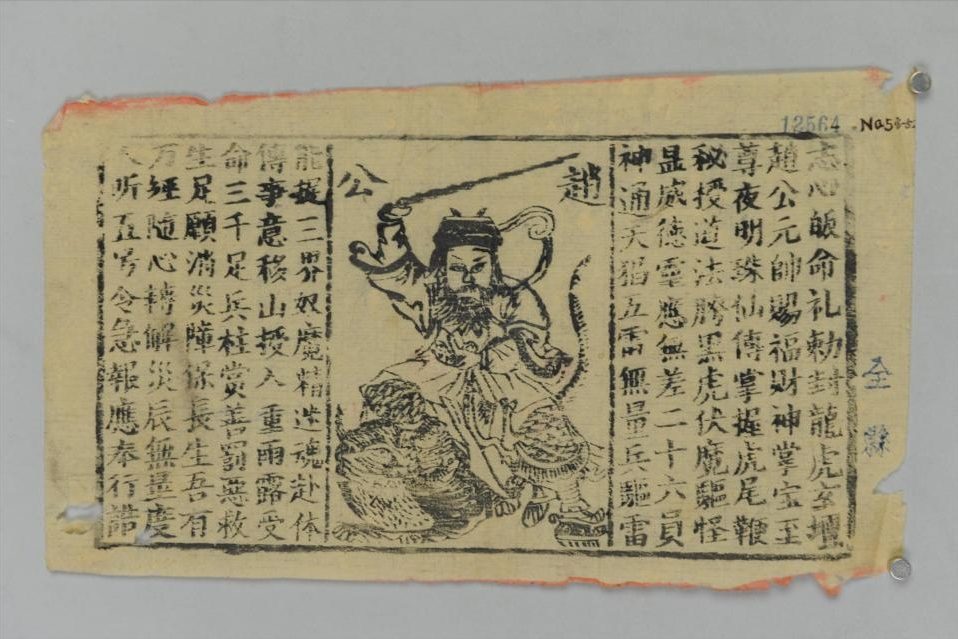 12564
No58-52
志心皈命礼勅封龍虎玄壇
趙公元帥賜福財神掌宝至
尊夜明珠仙傳掌握虎尾鞭
秘授道法騰黑虎伏魔驅怪
显威德灵應無差二十六員
神通天猖五雷無量兵驅雷
趙公
能握三界奴魔精迷魂赴体
傳事意移山授入重雨露受
命三千足兵柱赏善罰惡救
生足願消災障保長生吾有
万經隨心轉解災辰無量度
人听五号令急報應奉行誥
全縣